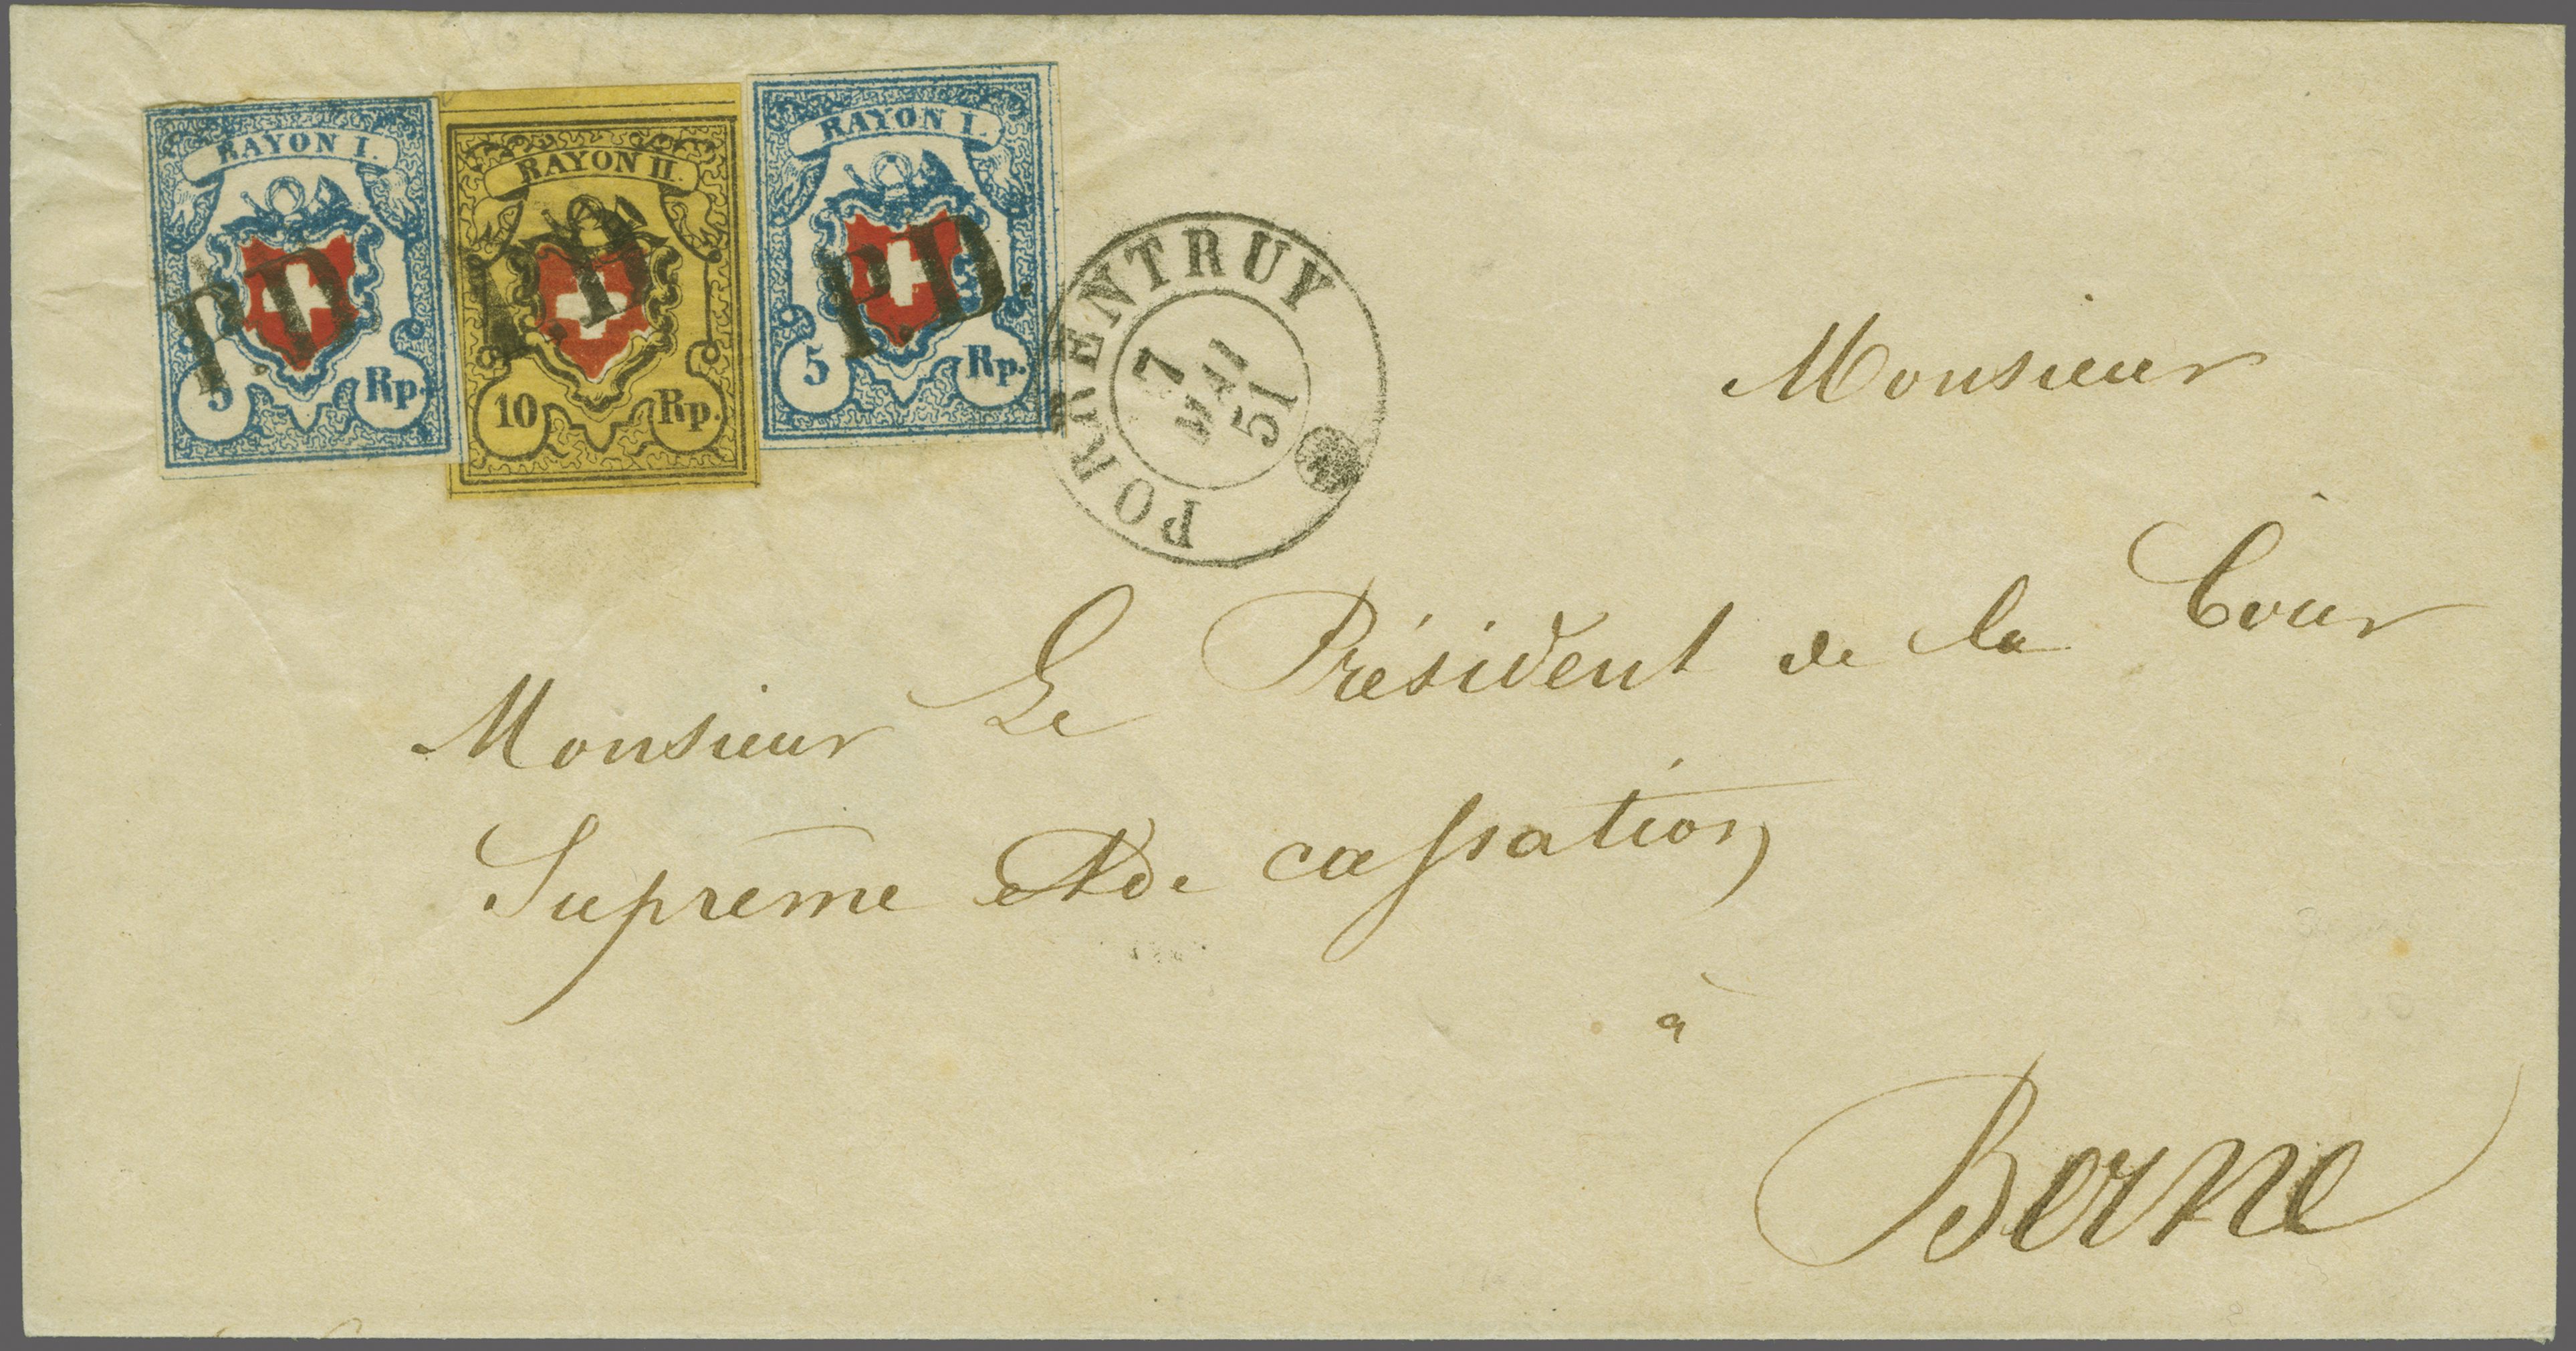 RAYON I.
5 Rp.
P.D.
RAYON II.
10 Rp.
P.D.
RAYON I.
5 Rp.
P.D.
PORRENTRUY
7
MAI
51
Monsieur
Monsieur Le Président de la Cour
Suprême et de cassation
à
Berne